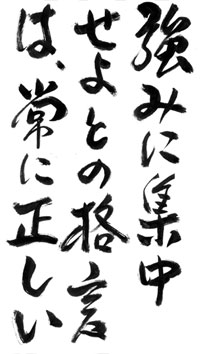 強みに集中
せよとの格言
は、常に正しい